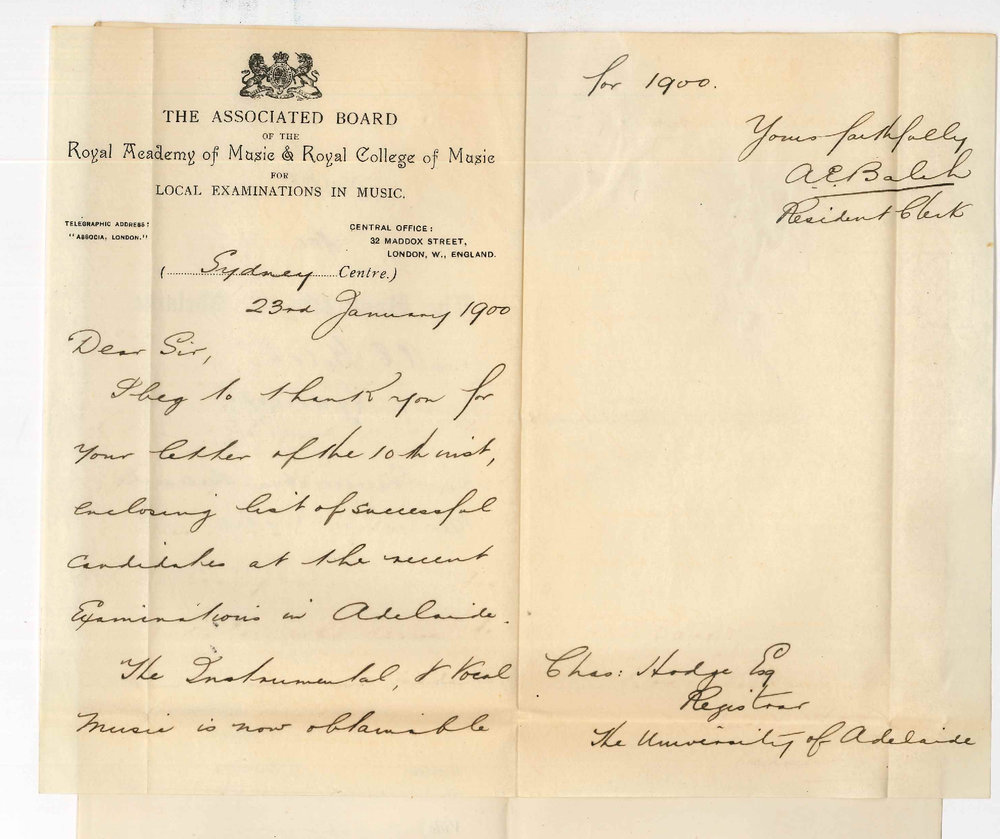 THE ASSOCIATED BOARD
OF THE
Royal Academy of Music & Royal College of Music
FOR
LOCAL EXAMINATIONS IN MUSIC.
TELEGRAPHIC ADDRESS:
"ASSOCIA, LONDON."
CENTRAL OFFICE:
32 MADDOX STREET,
LONDON, W., ENGLAND.
(Sydney Centre.)
23rd January 1900
Dear Sir,
I beg to thank you for
your letter of the 10th inst,
enclosing list of successful
candidates at the recent
Examinations in Adelaide.
The Instrumental, & Vocal
Music is now obtainable
for 1900.
Yours faithfully
A.E. Balch
Resident Clerk
Chas: Hodge Esq
Registrar
The University of Adelaide